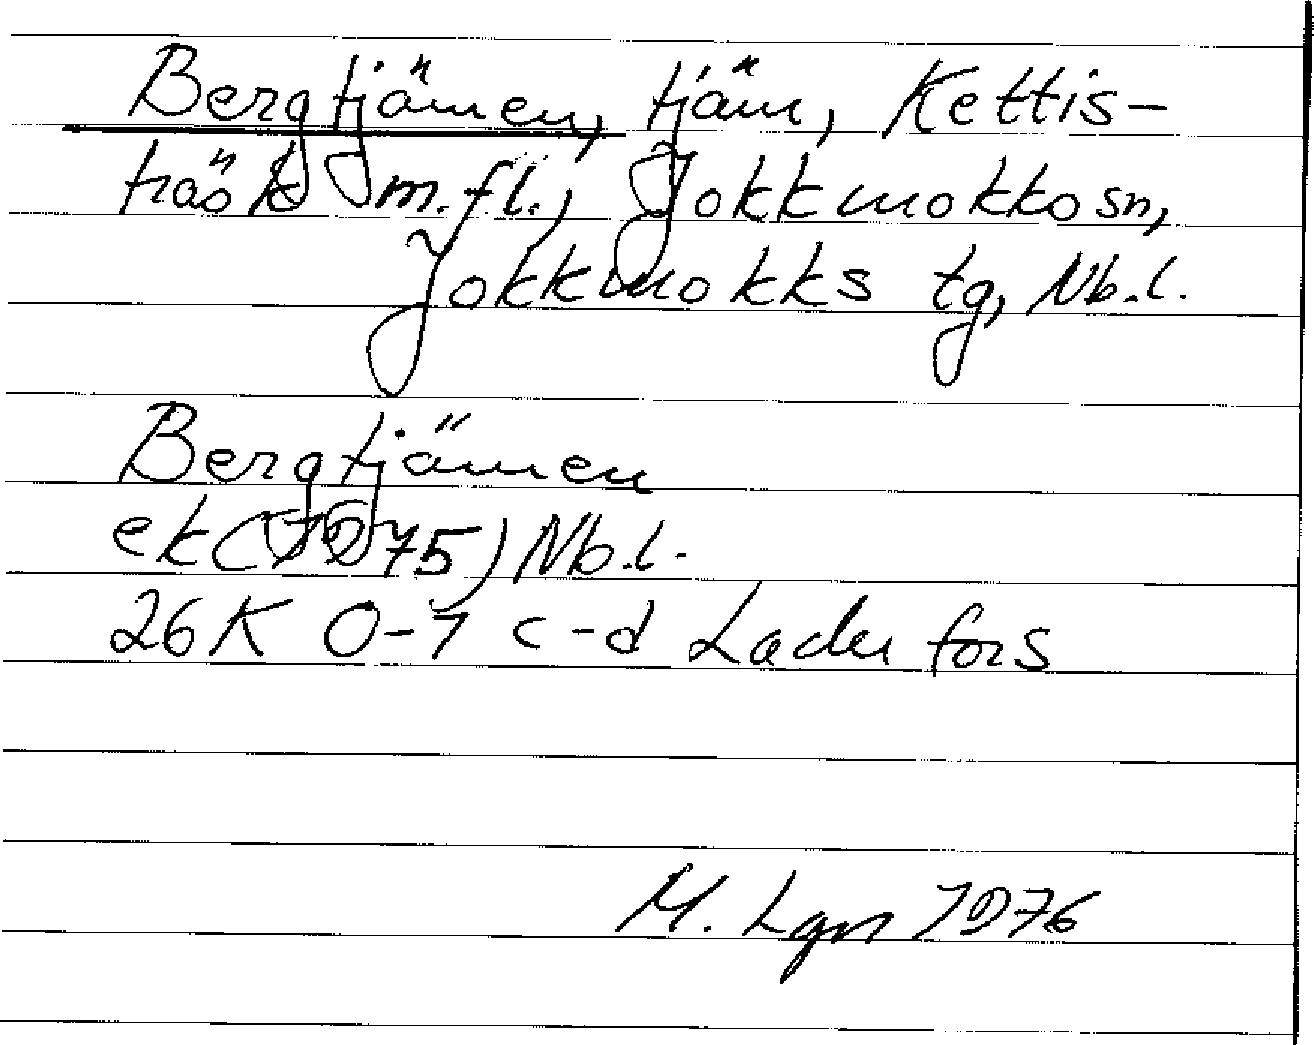 Bergtjärnen, tjärn, Kettis-
träsk m.fl., Jokkmokks sn,
Jokkmokks tg, Nb.l.
Bergtjärnen
ek (1975) Nb.l.
26K 0-1 c-d Laduforss
M. Lgn 1976